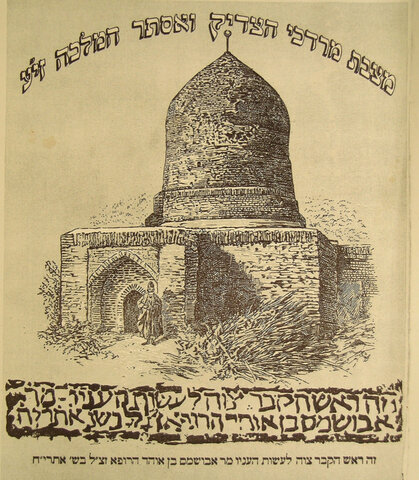 מצבת מרדכי הצדיק ואסתר המלכה זי"ע
זה ראש הקבר צוה לעשות העניו מר
אבושמס בן אוהד הרופא
זה ראש הקבר צוה לעשות העניו מר אבושמס בן אוהד הרופא זצ"ל בש' אתרי"ח